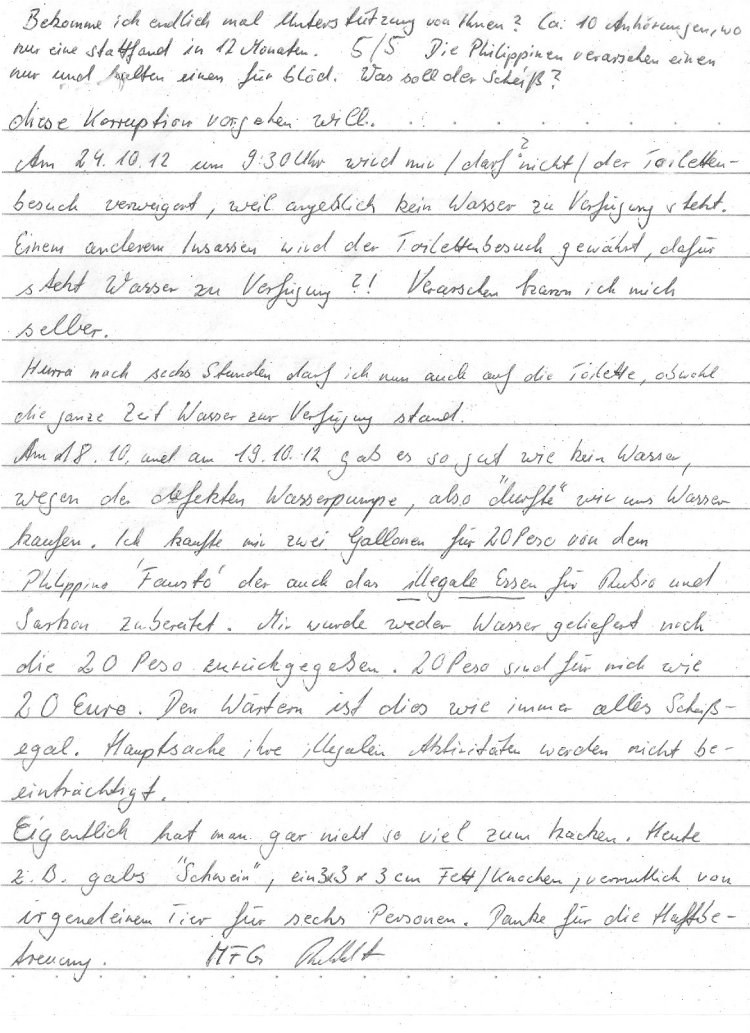 Bekomme ich endlich mal Unterstützung von Ihnen? Ca. 10 Anhörungen, wo
nur eine stattfand in 12 Monaten. 5/5 Die Philippinen verarschen einen
nur und halten einen für blöd. Was soll der Scheiß?
diese Korruption vorgehen will.
Am 24.10.12 um 9:30 Uhr wird mir /darf ? nicht/ der Toiletten-
besuch verweigert, weil angeblich kein Wasser zu Verfügung steht.
Einem anderem Insassen wird der Toilettenbesuch gewährt, dafür
steht Wasser zu Verfügung?! Verarschen kann ich mich
selber.
Hurra nach sechs Stunden darf ich nun auch auf die Toilette, obwohl
die ganze Zeit Wasser zur Verfügung stand.
Am 18.10. und am 19.10.12 gab es so gut wie kein Wasser,
wegen der defekten Wasserpumpe, also "durfte" wir uns Wasser
kaufen. Ich kaufte mir zwei Gallonen für 20 Peso von dem
Philippino 'Fausto' der auch das illegale Essen für Rubio und
zubereitet. Mir wurde weder Wasser geliefert noch
die 20 Peso zurückgegeben. 20 Peso sind für mich wie
20 Euro. Den Wärtern ist dies wie immer alles Scheiß-
egal. Hauptsache ihre illegalen Aktivitäten werden nicht be-
einträchtigt.
Eigentlich hat man gar nicht so viel zum kacken. Heute
z.B. gabs "Schwein", ein 3x3x3cm Fett/Knochen, vermutlich von
irgendeinem Tier für sechs Personen. Danke für die Haftbe-
treuung. MFG